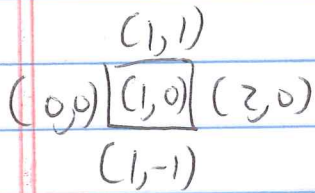 (1,1)
(0,0) (1,0) (2,0)
(1,-1)